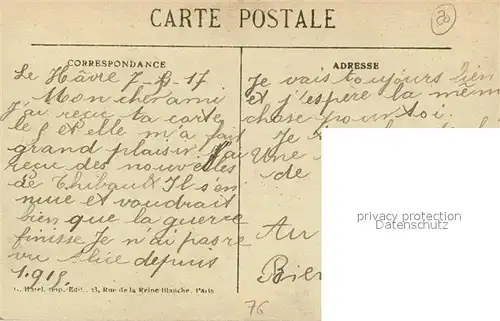 CARTE POSTALE
20
CORRESPONDANCE
Le Hâvre 7-8-17
Mon cher ami
J'ai reçu ta carte
le 5 et elle m'a fait
grand plaisir J'ai
reçu des nouvelles
de Thibault Il s'en
nuie et voudrait
bien que la guerre
finisse Je n'ai pas re
vu Alice depuis
1.915.
L. Hatel. Imp.-Edit. 13, Rue de la Reine-Blanche. Paris
ADRESSE
Je vais toujours bien
et j'espère la mêm
chose pour toi.
Je
Une
de
Au
Bien
76
privacy protection
Datenschutz